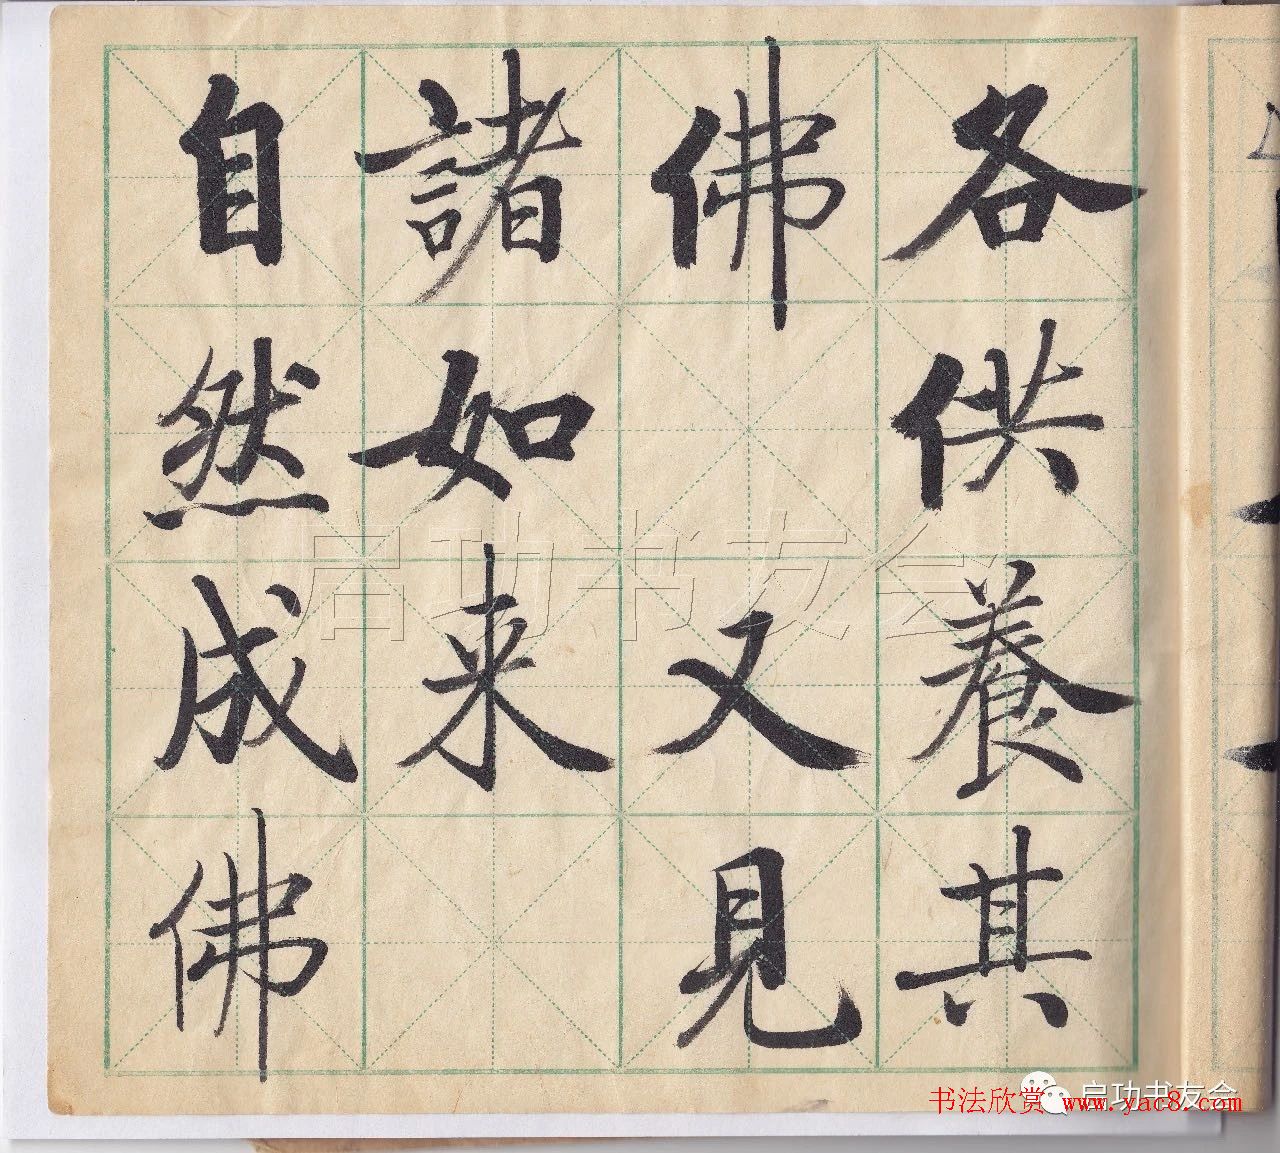 各供養其
佛 又見
諸如来
自然成佛
启功书友会
启功书友会
书法欣赏 www.yac8.com